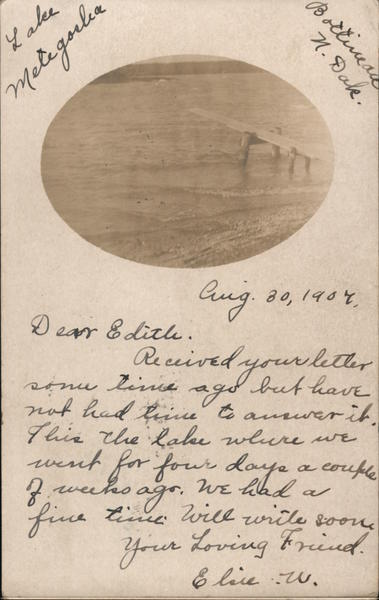 Lake
Metegosha
Bottineau
N. Dak.
Aug. 30, 1907.
Dear Edith.
Received your letter
some time ago but have
not had time to answer it.
This the lake where we
went for four days a couple
of weeks ago. We had a
fine time. Will write soon.
Your Loving Friend.
Elsie W.